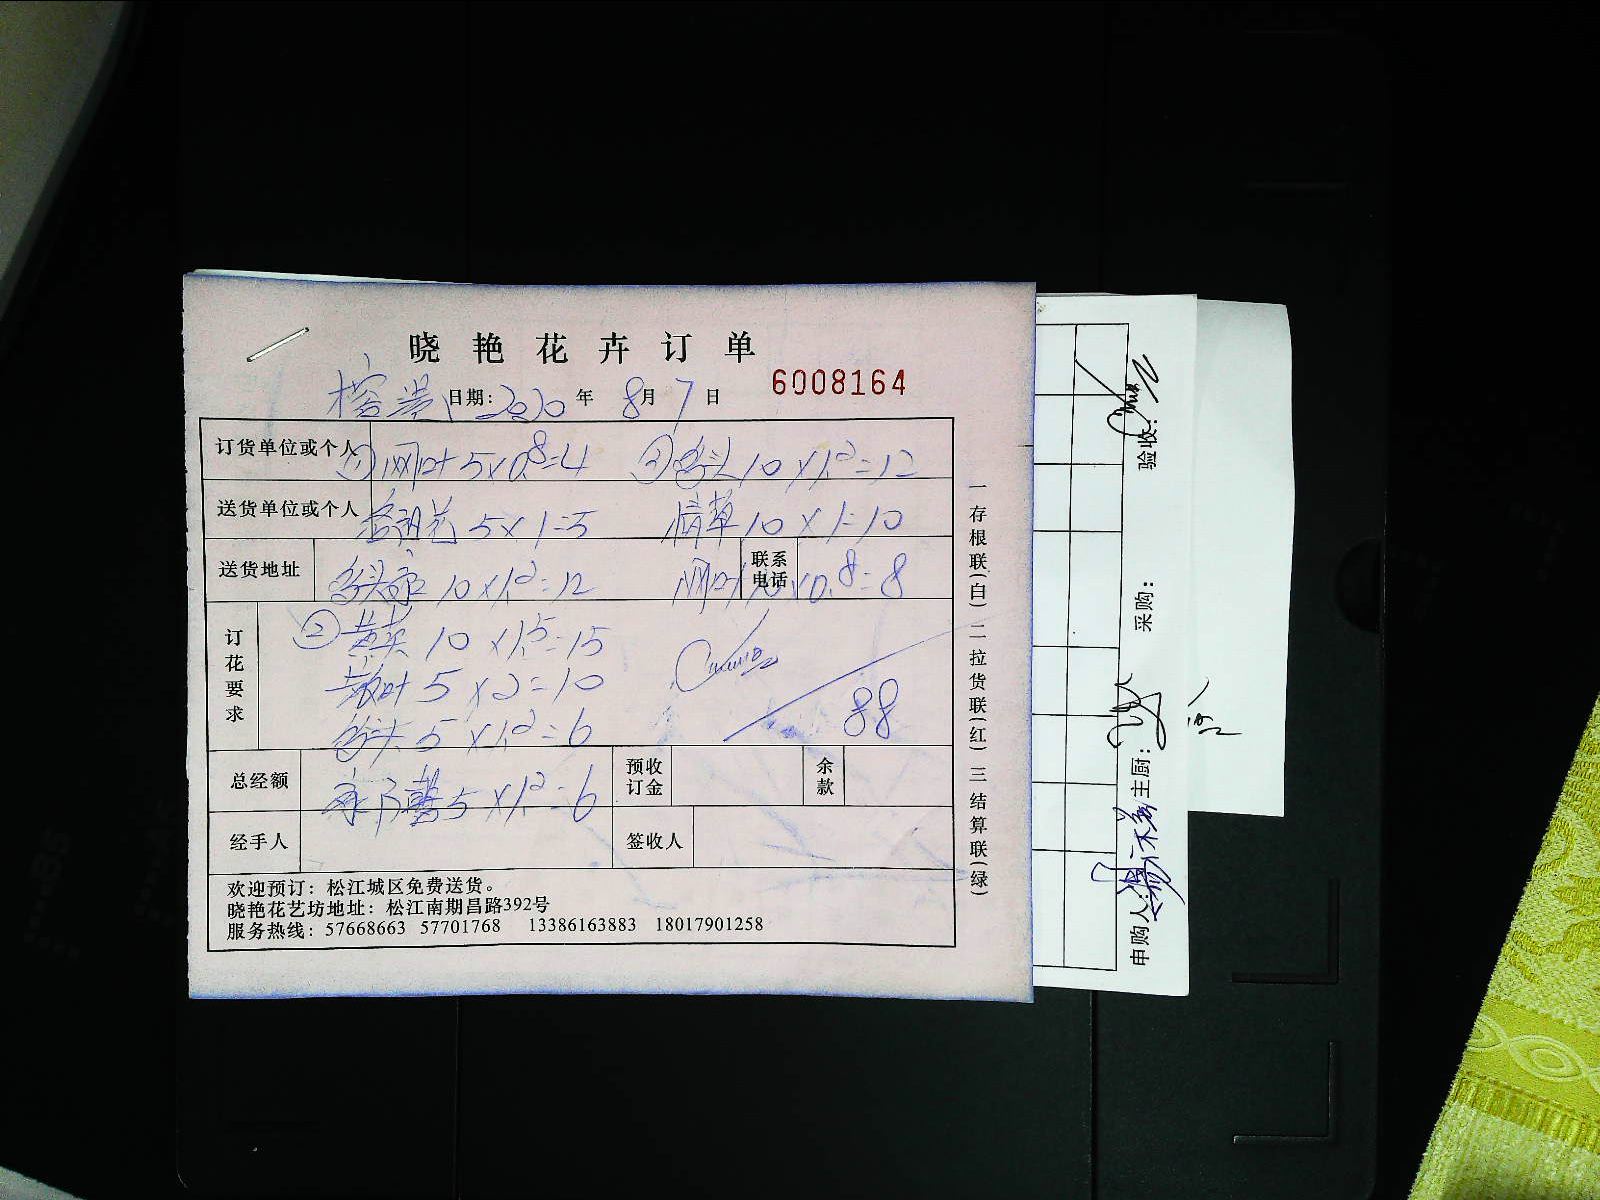 晓艳花卉订单
日期: 2020 年 8月 7 日 6008164
订货单位或个人 ① 网叶 5×0.8=4 ③ 10×1.2=12
送货单位或个人 5×1=5 情草 10×1=10
送货地址 10×1.2=12 联系电话 网叶 10×0.8=8
订花要求 ② 10×1.5=15
叶 5×2=10
5×1.2=6
88
总经额 5×1.2=6 预收订金 余款
经手人 签收人
欢迎预订：松江城区免费送货。
晓艳花艺坊地址：松江南期昌路392号
服务热线：57668663 57701768 13386163883 18017901258
一存根联(白) 二拉货联(红) 三结算联(绿)
申购人: 主厨: 采购: 验收: